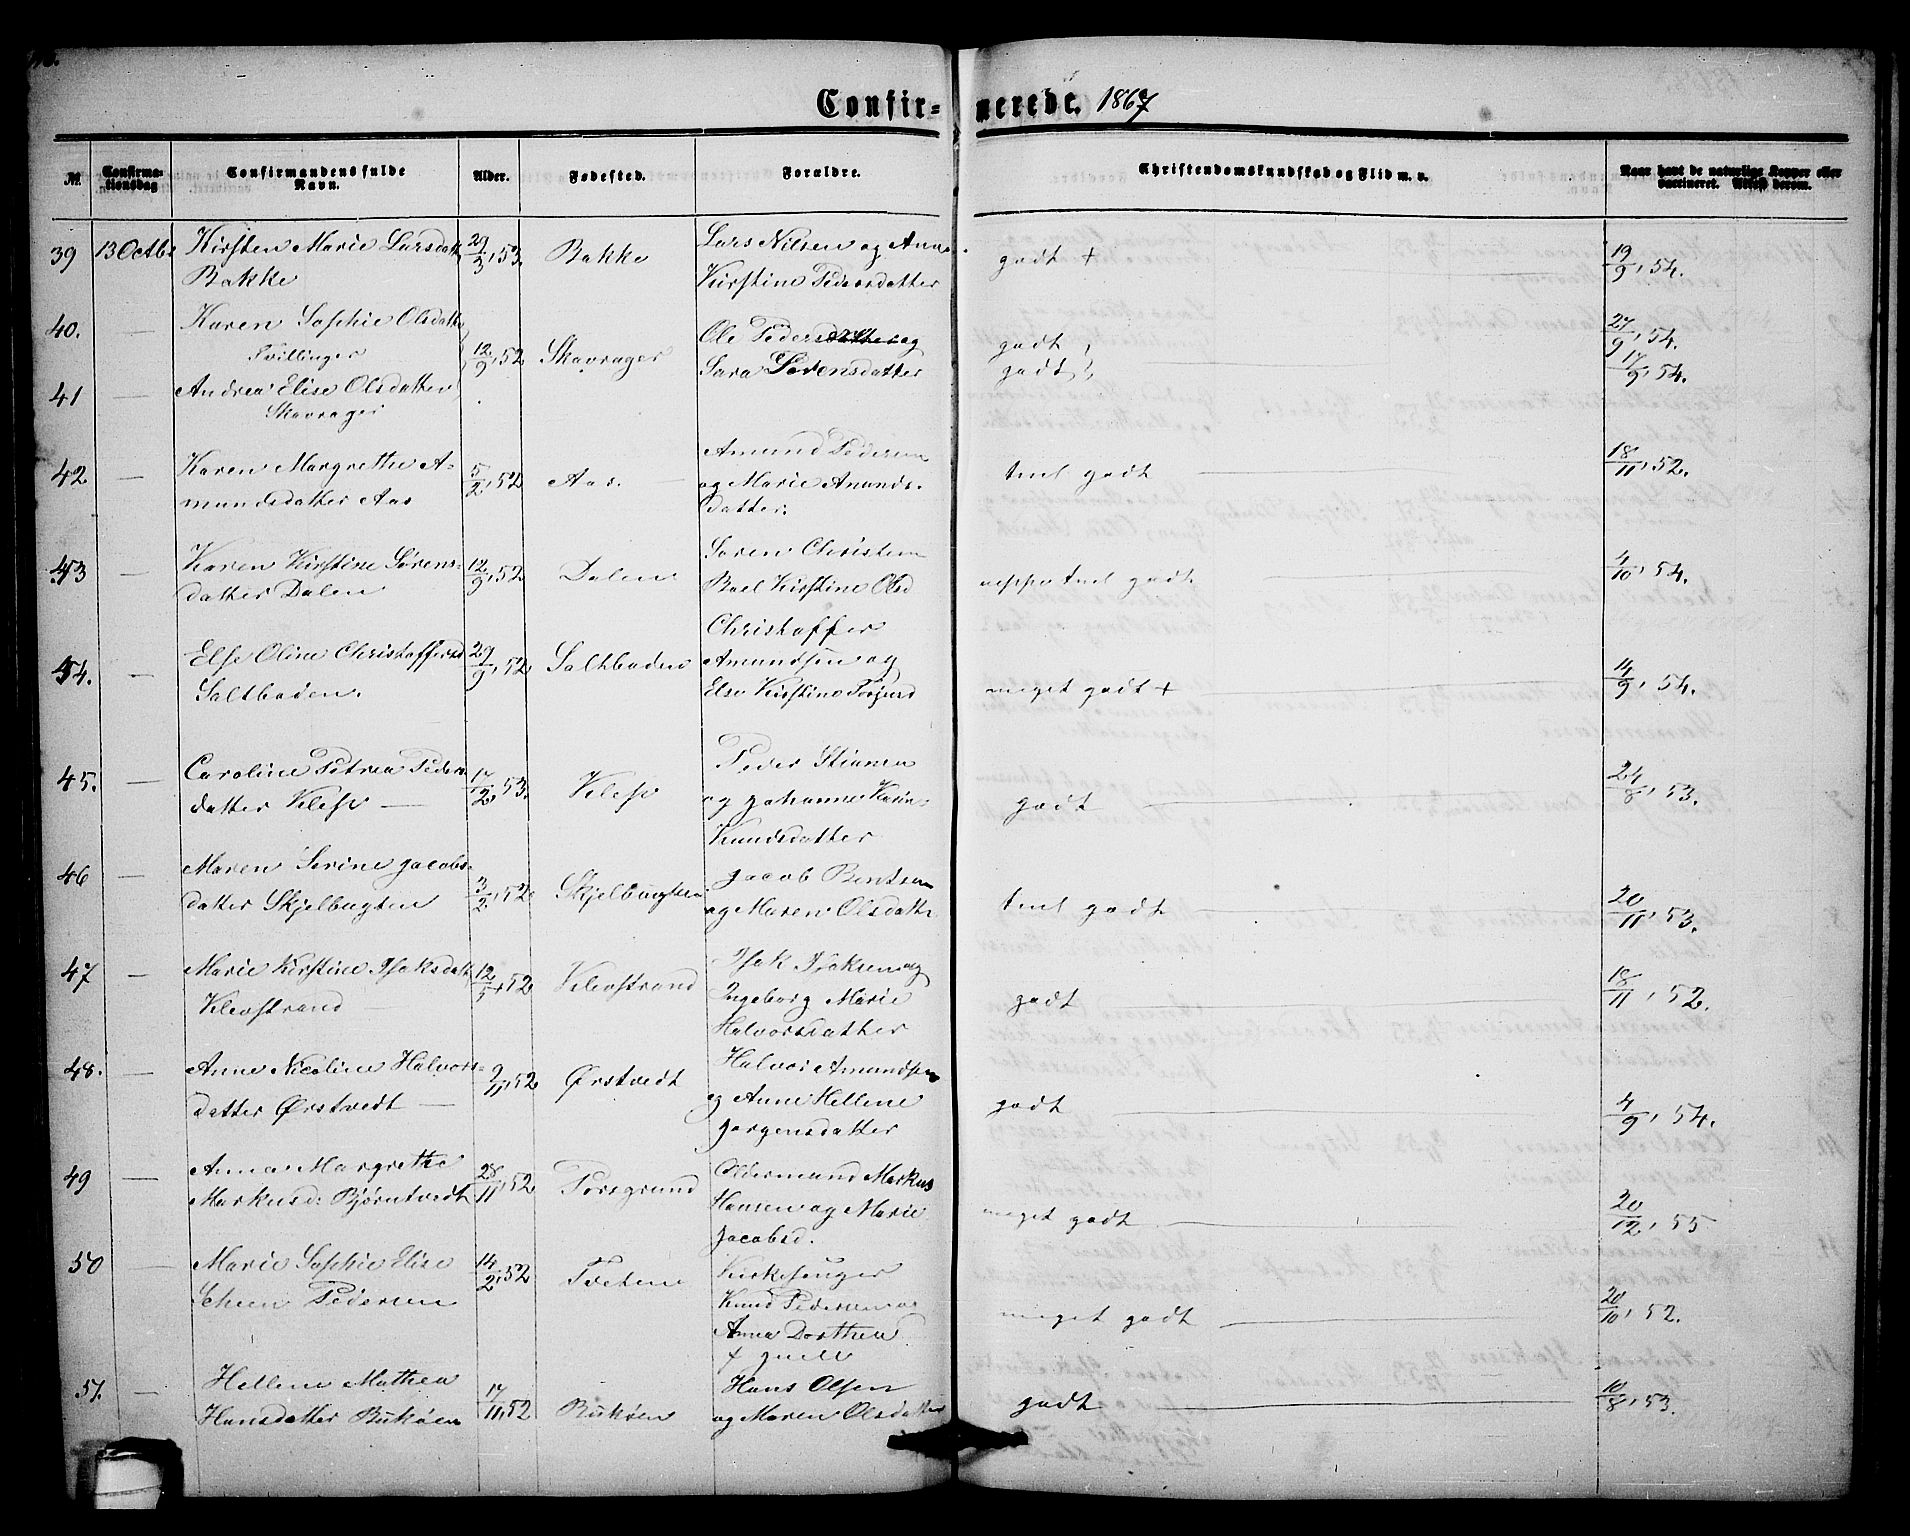 Confir= merede. 1867
No. Confirma-tionsdag Confirmandens fulde Navn. Alder. Fødested. Forældre. Christendomskundskab og Flid m. v. Naar havt de naturlige Kopper eller vaccineret. Attest derom.
39 13 Octbr Kirsten Marie Larsdatt 29/3, 53. Bakke Lars Nilsen og Anne godt + 19/9, 54.
Bakke Kirstine Pedersdatter
40. — Karen Sophie Olsdatte 12/9, 52 Skavrager Ole Peders og godt, 27/9, 54.
Tvillinger Sara Sørensdatter godt, 17/9, 54.
41 — Andrea Elise Olsdatter
Skavrager
42 — Karen Margrethe A- 5/2, 52 Aas. Amund Pedersen tml godt 18/11, 52.
mundsdatter Aas og Marie Amunds-
datter.
43 — Karen Kirstine Sørens- 12/9, 52 Dalen Søren Christen 4/10, 54.
datter Dalen Boel Kirstine Olsd tml godt
44. — Else Oline Christoffersd 29/9, 52 Saltboden Christoffer
Saltboden. Amundsen og meget godt + 14/9, 54.
Else Kirstine
45. — Caroline Petrea Peders 17/12, 53. Klep Peder Stiansen godt 24/8, 53.
datter Klep — og Johanne Karin
Knudsdatter
46 — Maren Serine Jacobs- 3/2, 52 Skjelbugten Jacob Bentsen tml godt 20/11, 53.
datter Skjelbugten og Maren Olsdattr
47 — Marie Kirstine Isaksdatt 12/5, 52 Klevstrand Isak Isaksen og godt 18/11, 52.
Klevstrand — Ingeborg Marie
Halvorsdatter
48. — Anne Nicoline Halvors- 9/11, 52 Ørstvedt Halvor Amundsen godt 4/9, 54.
datter Ørstvedt — og Anne Hellene
Jørgensdatter
49 — Anna Margrethe 28/11, 52 Porsgrund Oldermand Markus meget godt 20/12, 55
Markusd: Bjørntvedt Hansen og Marie
Jacobsd.
50 — Marie Sophie Elise 14/2, 52 Tveten Kirkesanger meget godt 20/10, 52.
Scheen Pedersen Knud Pedersen og
Anna Dorthea
f Juell
51. — Hellene Mathea 17/11, 52 Bukøen Hans Olsen godt 10/8, 53.
Hansdatter Bukøen og Maren Olsdatter